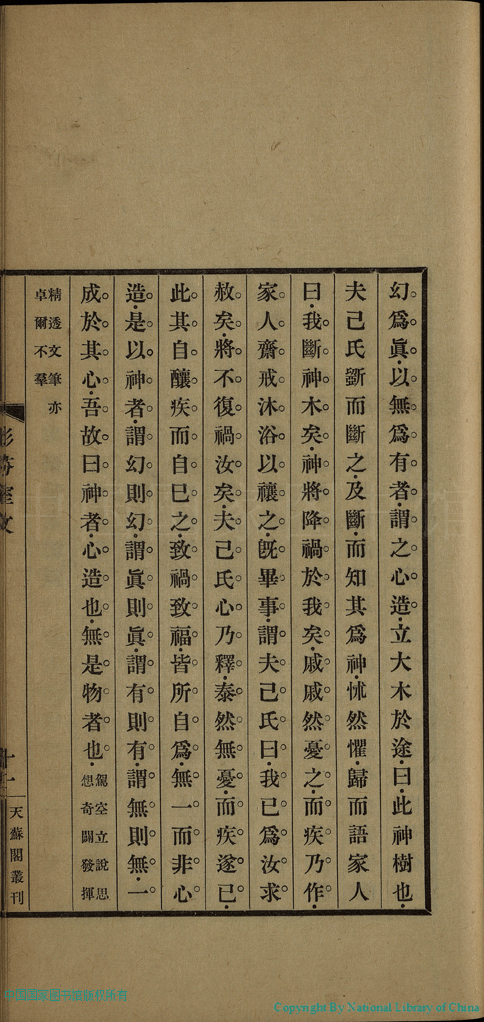 幻爲眞以無爲有者謂之心造立大木於途曰此神樹也
夫己氏斵而斷之及斷而知其爲神怵然懼歸而語家人
曰我斷神木矣神將降禍於我矣戚戚然憂之而疾乃作
家人齋戒沐浴以禳之旣畢事謂夫己氏曰我已爲汝求
赦矣將不復禍汝矣夫己氏心乃釋泰然無憂而疾遂已
此其自釀疾而自已之致禍致福皆所自爲無一而非心
造是以神者謂幻則幻謂眞則眞謂有則有謂無則無一
成於其心吾故曰神者心造也無是物者也
駕空立說思
想奇闢發揮
精透文筆亦
卓爾不羣
彤芬室文
十一
天蘇閣叢刊
Copyright By National Library of China